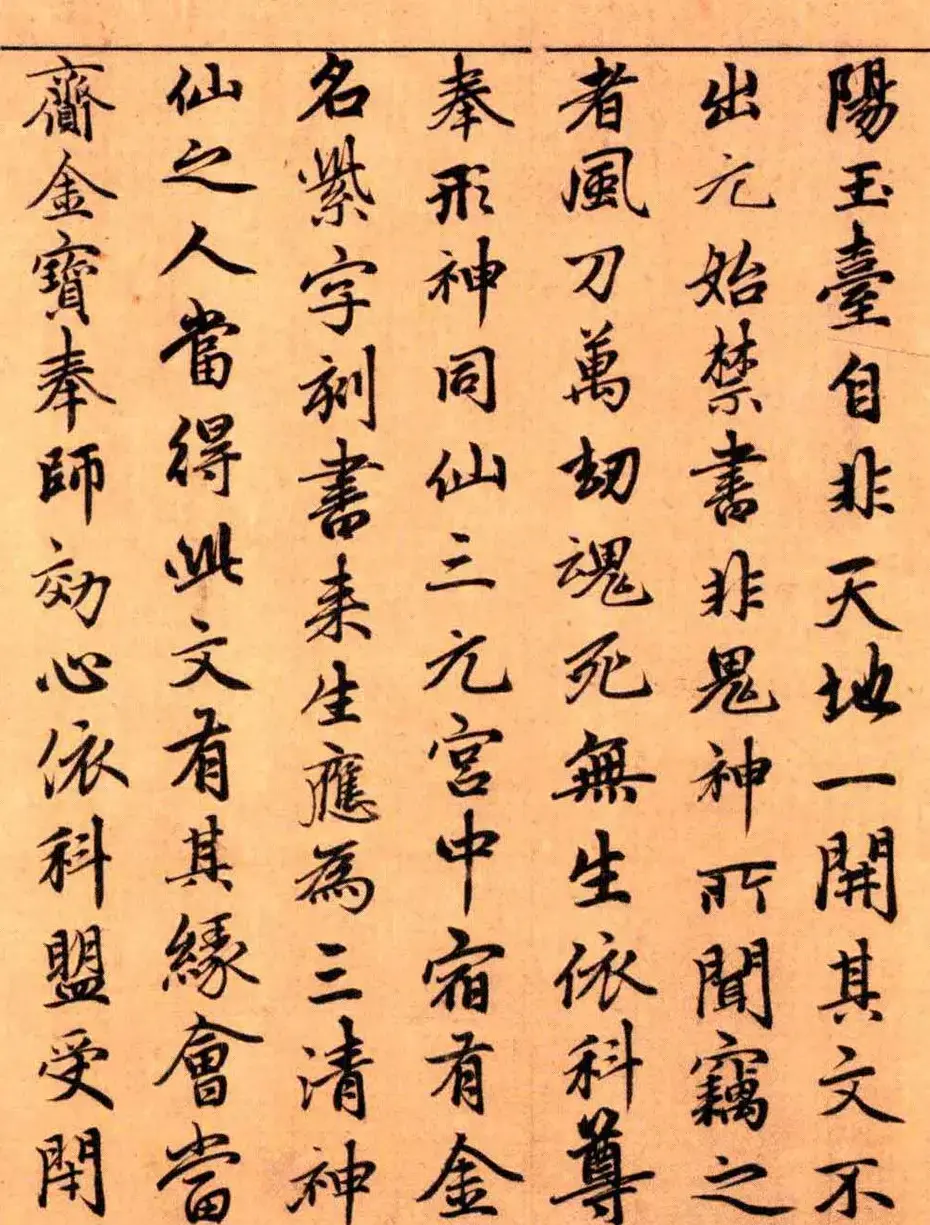 陽玉臺自非天地一開其文不
出元始禁書非鬼神所聞竊之
者風刀萬劫魂死無生依科尊
奉形神同仙三元宮中宿有金
名紫字刻書来生應為三清神
仙之人當得此文有其緣會當
齎金寶奉師効心依科盟受閉